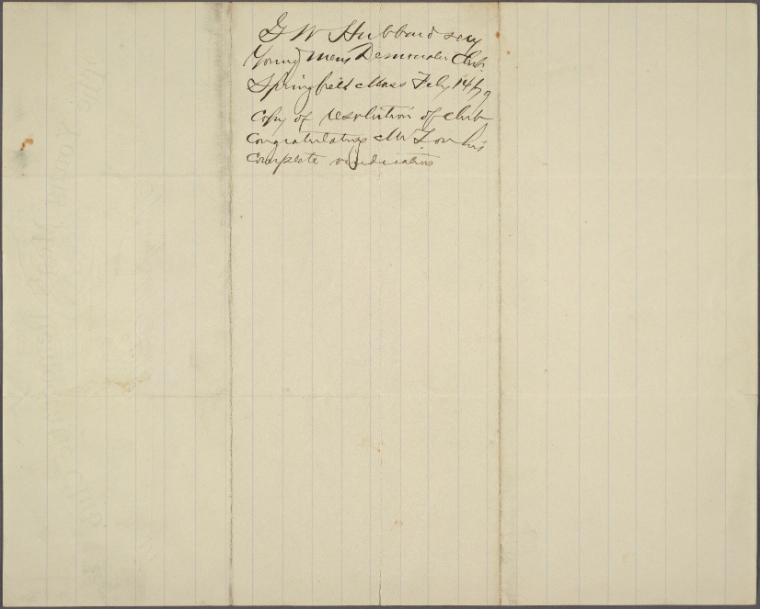 G W Hubbard secy
Young Mens Democratic Club
Springfield Mass Feby 14/79
Copy of resolution of club
Congratulating Mr T. on his
Complete vindication